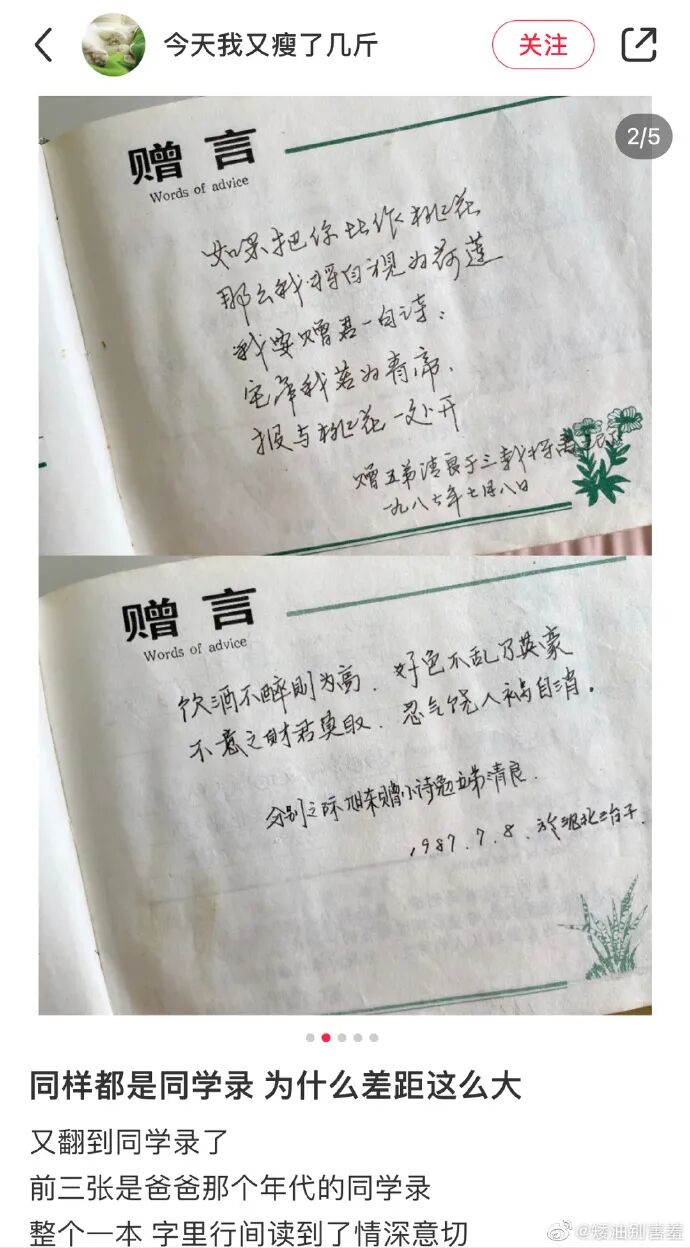 今天我又瘦了几斤
关注
2/5
赠言
Words of advice
如果把你比作桃花
那么我将自视为荷莲
我要赠君一句诗：
它年我若为青帝.
报与桃花一处开
赠五弟清良于三载
一九八七年七月八日
赠言
Words of advice
饮酒不醉则为高.好色不乱乃英豪
不意之财君莫取.忍气饶人祸自消。
分别之际旭东赠小诗勉五弟清良.
1987.7.8.于沈北三台子.
同样都是同学录 为什么差距这么大
又翻到同学录了
前三张是爸爸那个年代的同学录
整个一本 字里行间读到了情深意切
@矮油别害羞